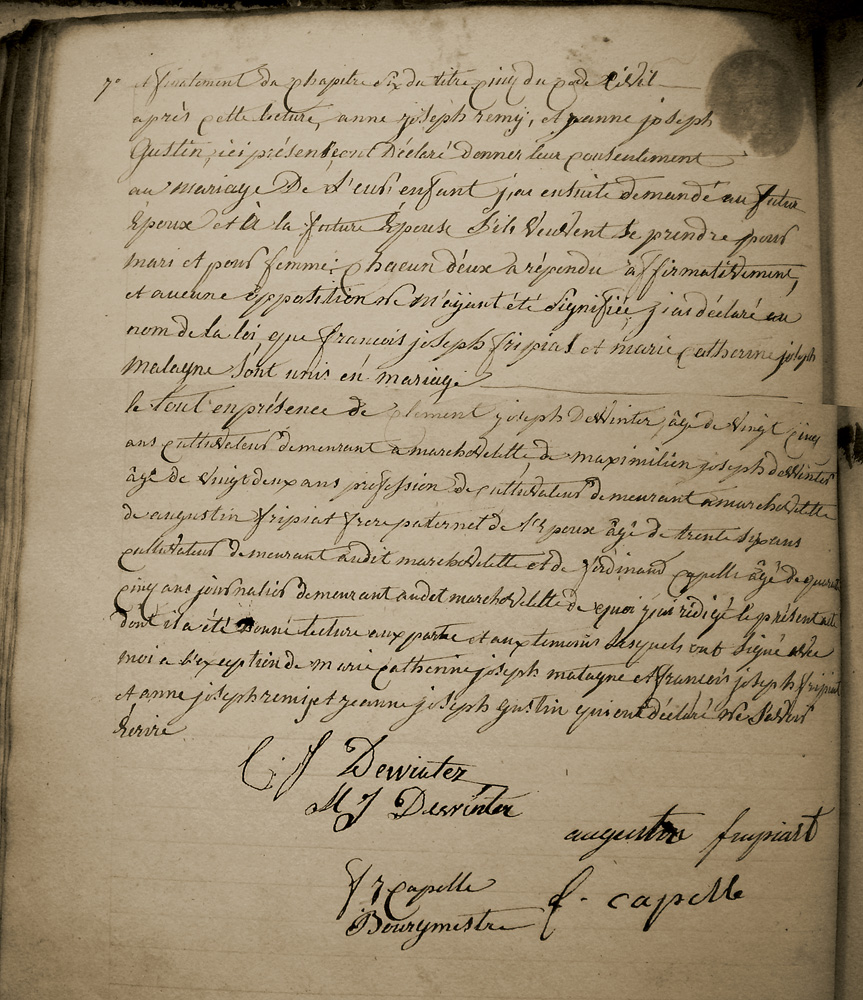 7° et finalement du chapitre six du titre cinq du code civil
après cette lecture, anne joseph remij, et jeanne joseph
Gustin, ici présent ont déclaré donner leur consentement
au mariage De L'eurs enfant j'ai ensuite demandé au futur
Epoux et à la future Epouse s'ils veuvent se prendre pour
mari et pour femme; chacun d'eux a répondu affirmativement,
et aucune opposition ne m'ayant été signifiée, j'ai déclaré au
nom de la loi que francois joseph fripiat et marie catherine joseph
malagne sont unis en mariage
le tout en présence de clement joseph DeWinter âgé de vingt cinq
ans cultivateur demeurant a marchovelette de maximilien joseph deWinter
âgé de vingt deux ans profession de cultivateur demeurant a marchovelette
de augustin fripiat frere paternel de l'Epoux âgé de trente six ans
cultivateur demeurant audit marchovelette et de ferdinand capelle âgé de quarante
cinq ans journalier demeurant audet marchovelette de quoi j'ai rédigé le présent acte
dont il a été donné lecture aux partie et aux temoins lesquels ont signé avec
moi a l'exeption de marie catherine joseph malagne et francois joseph fripiat
et anne joseph remij et jeanne joseph gustin qui ont déclaré ne savoir
Ecrire
C. J Dewinter
M J Dewinter
augustin fripiart
f J Capelle
f. capelle
Bourgmestre